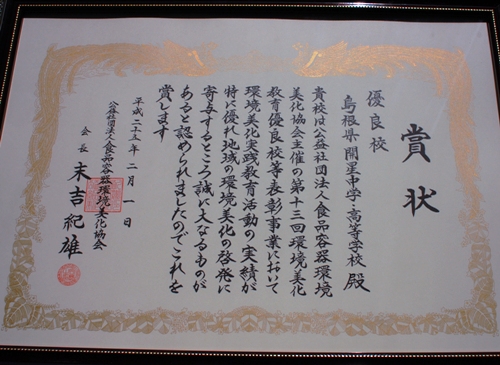 賞状
優良校
島根県 開星中学・高等学校 殿
貴校は公益社団法人食品容器環境
美化協会主催の第十三回環境美化
教育優良校等表彰事業において
環境美化実践教育活動の実績が
特に優れ地域の環境美化の啓発に
寄与するところ誠に大なるものが
あると認められましたのでこれを
賞します
平成二十五年二月一日
公益社団法人食品容器環境美化協会
会長 末吉紀雄